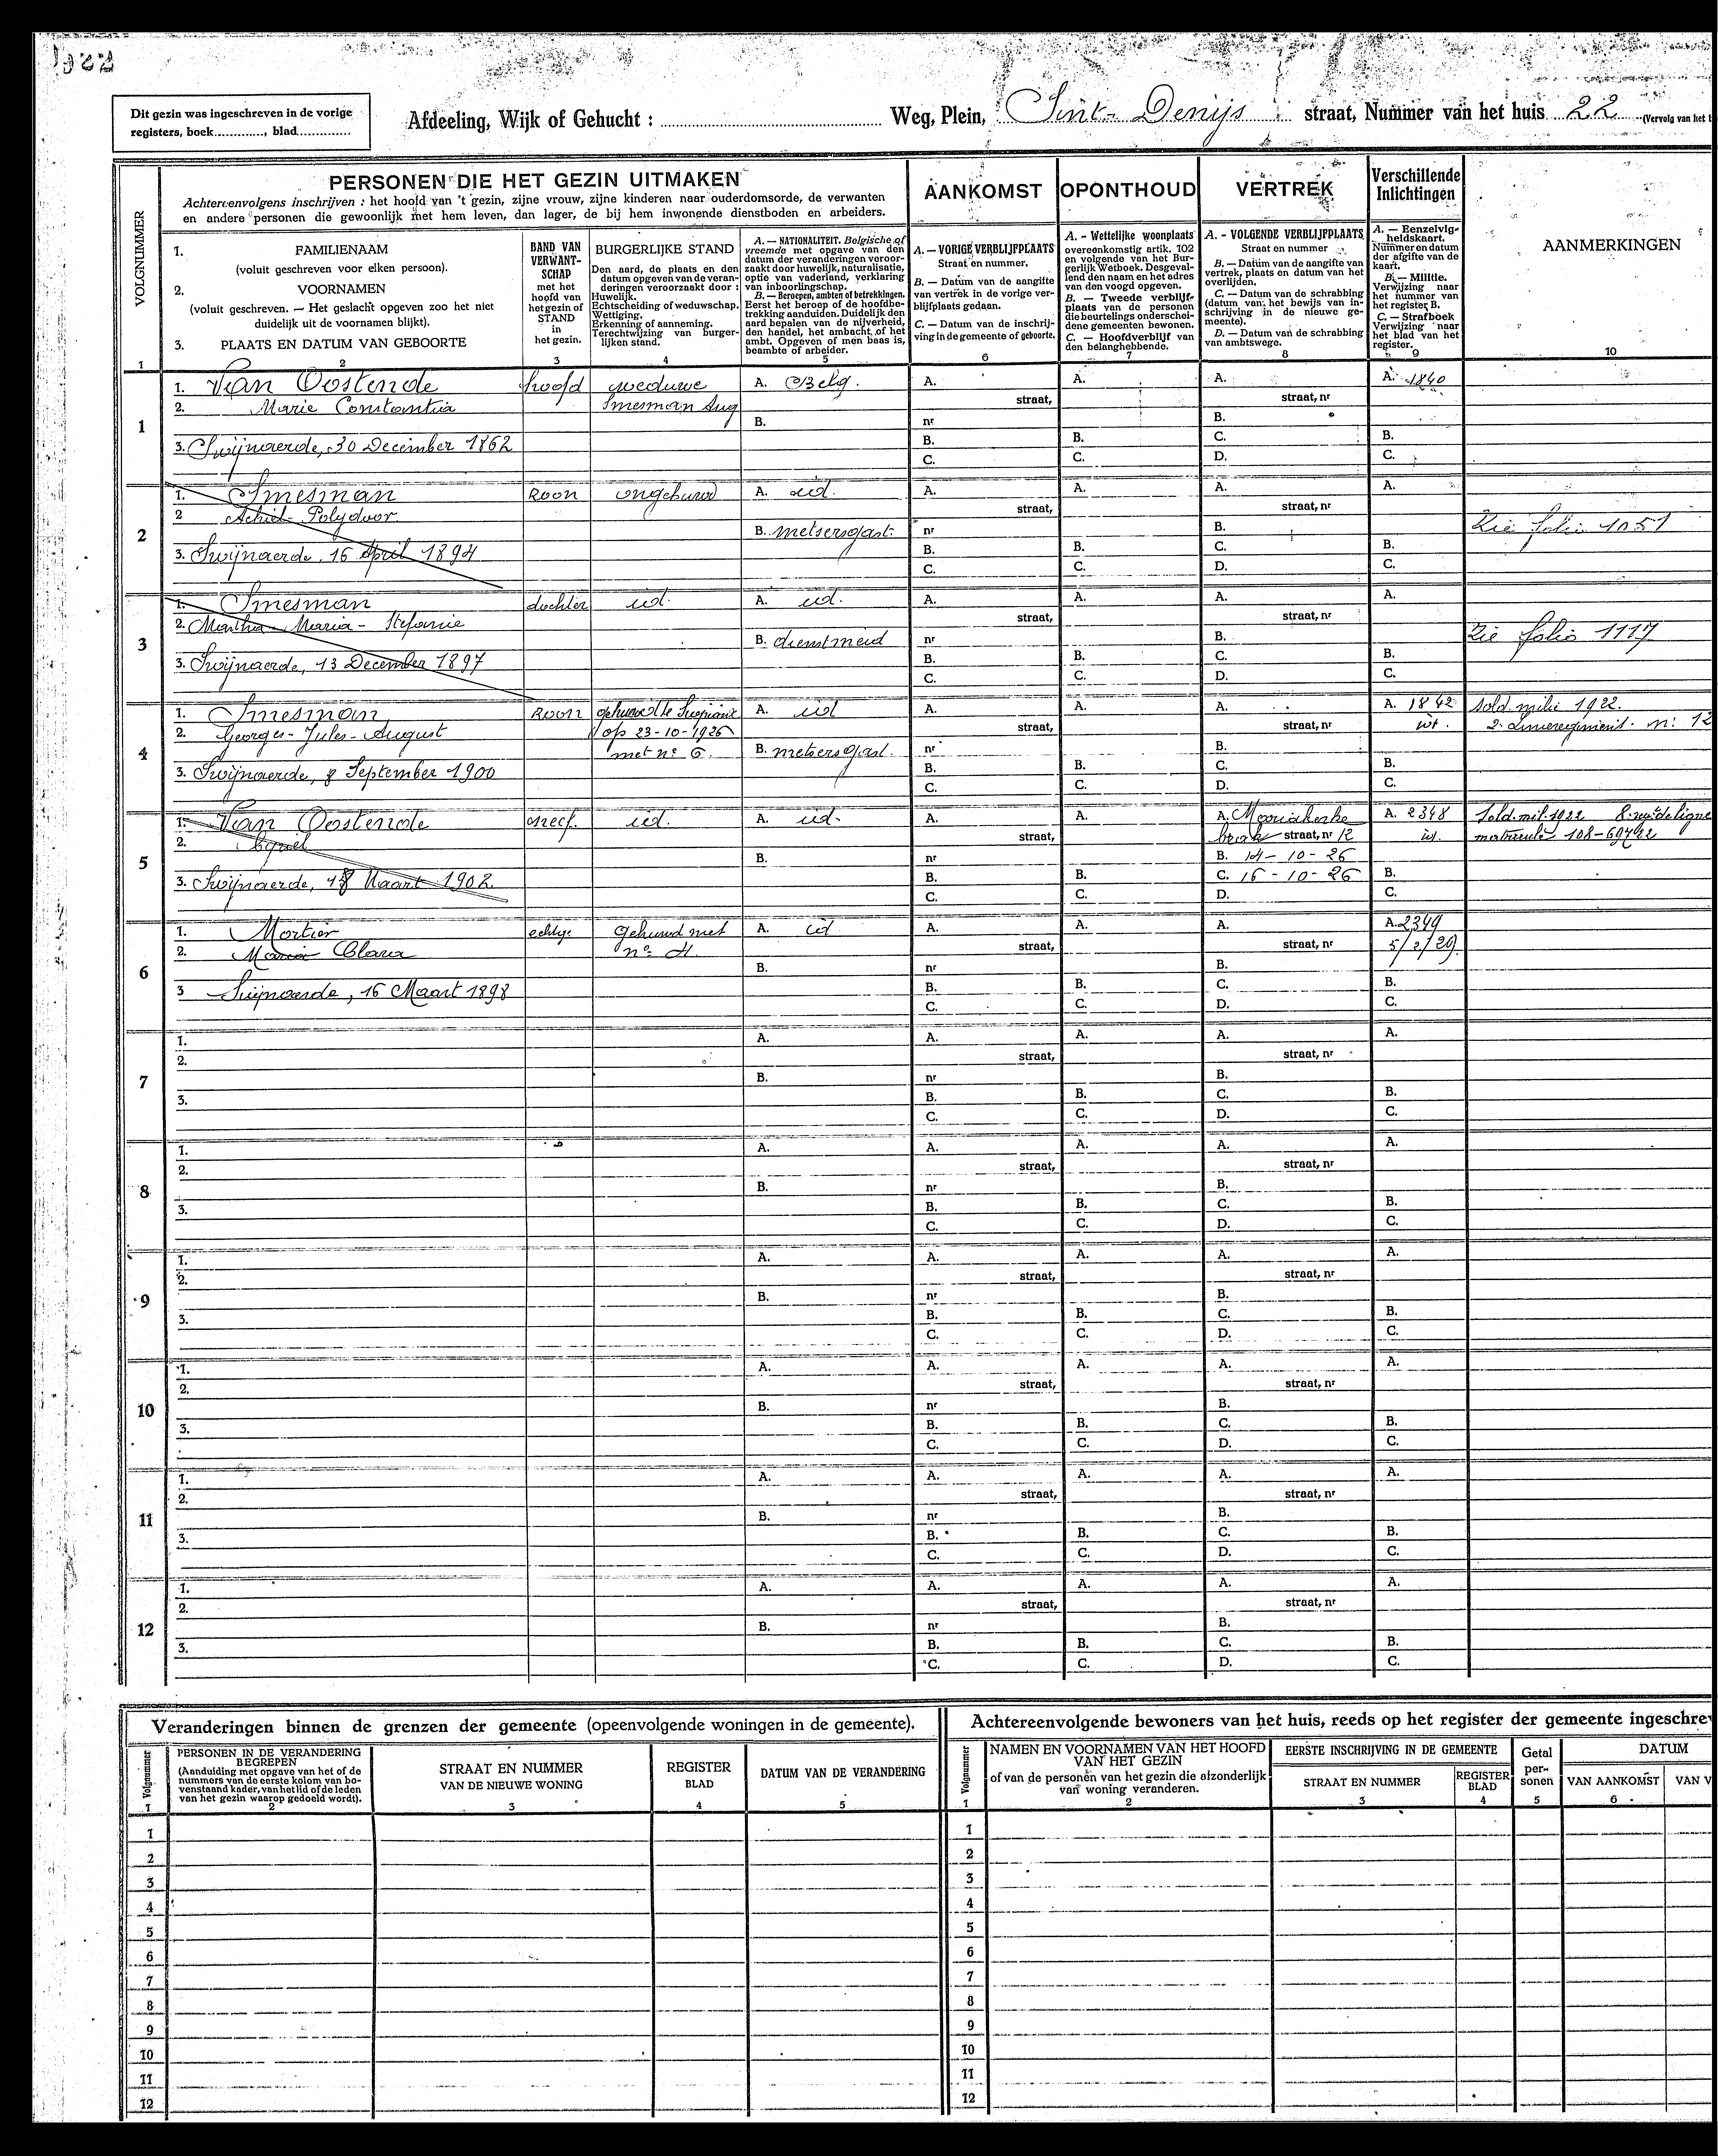 1922
Dit gezin was ingeschreven in de vorige
registers, boek............, blad............
Afdeeling, Wijk of Gehucht : Weg, Plein, Sint-Denijs straat, Nummer van het huis 22 (Vervolg van het
VOLGNUMMER
1
PERSONEN DIE HET GEZIN UITMAKEN
Achtereenvolgens inschrijven : het hoofd van 't gezin, zijne vrouw, zijne kinderen naar ouderdomsorde, de verwanten
en andere personen die gewoonlijk met hem leven, dan lager, de bij hem inwonende dienstboden en arbeiders.
AANKOMST
OPONTHOUD
VERTREK
Verschillende
Inlichtingen
1. FAMILIENAAM
(voluit geschreven voor elken persoon).
2. VOORNAMEN
(voluit geschreven. — Het geslacht opgeven zoo het niet
duidelijk uit de voornamen blijkt).
3. PLAATS EN DATUM VAN GEBOORTE
2
BAND VAN
VERWANT-
SCHAP
met het
hoofd van
het gezin of
STAND
in
het gezin.
3
BURGERLIJKE STAND
Den aard, de plaats en den
datum opgeven van de veran-
deringen veroorzaakt door :
Huwelijk.
Echtscheiding of weduwschap.
Wettiging.
Erkenning of aanneming.
Terechtwijzing van burger-
lijken stand.
4
A. — NATIONALITEIT. Belgische of
vreemde met opgave van den
datum der veranderingen veroor-
zaakt door huwelijk, naturalisatie,
optie van vaderland, verklaring
van inboorlingschap.
B. — Beroepen, ambten of betrekkingen.
Eerst het beroep of de hoofdbe-
trekking aanduiden. Duidelijk den
aard bepalen van de nijverheid,
den handel, het ambacht of het
ambt. Opgeven of men baas is,
beambte of arbeider.
5
A. — VORIGE VERBLIJFPLAATS
Straat en nummer.
B. — Datum van de aangifte
van vertrek in de vorige ver-
blijfplaats gedaan.
C. — Datum van de inschrij-
ving in de gemeente of geboorte.
6
A. - Wettelijke woonplaats
overeenkomstig artik. 102
en volgende van het Bur-
gerlijk Wetboek. Desgeval-
lend den naam en het adres
van den voogd opgeven.
B. — Tweede verblijf-
plaats van de personen
die beurtelings onderschei-
dene gemeenten bewonen.
C. — Hoofdverblijf van
den belanghebbende.
7
A. - VOLGENDE VERBLIJFPLAATS
Straat en nummer
B. — Datum van de aangifte van
vertrek, plaats en datum van het
overlijden.
C. — Datum van de schrabbing
(datum van het bewijs van in-
schrijving in de nieuwe ge-
meente).
D. — Datum van de schrabbing
van ambtswege.
8
A. — Eenzelvig-
heidskaart.
Nummer en datum
der afgifte van de
kaart.
B. — Militie.
Verwijzing naar
het nummer van
het register B.
C. — Strafboek
Verwijzing naar
het blad van het
register.
9
AANMERKINGEN
10
1
1. Van Oostende hoofd weduwe A. Belg. A. A. A. A. 1840
2. Marie Constantia Smesman Aug straat, straat, nr
B. nr B.
3. Swijnaerde, 30 December 1862 B. B. C. B.
C. C. D. C.
2
1. Smesman Zoon ongehuwd A. id. A. A. A. A.
2 Achiel-Polydoor straat, straat, nr Zie folio 1051
B. metsersgast. nr B.
3. Swijnaerde, 16 April 1894 B. B. C. B.
C. C. D. C.
3
1. Smesman dochter id. A. id. A. A. A. A.
2. Martha-Maria-Stefanie straat, straat, nr Zie folio 1117
B. dienstmeid nr B.
3. Swijnaerde, 13 December 1897 B. B. C. B.
C. C. D. C.
4
1. Smesman Zoon gehuwd te A. id A. A. A. A. 1842 Sold. milic 1922.
2. Georges-Jules-August op 23-10-1926 straat, straat, nr 2e Linieregiment. n: 12
met no 6. B. metsersgast. nr B.
3. Swijnaerde, 8 September 1900 B. B. C. B.
C. C. D. C.
5
1. Van Oostende neef. id. A. id. A. A. A. Mariakerke A. 2348 Sold. mil. 1922 8e reg. de ligne
2. Cyriel straat, straat, nr 12 matricule 108-69722
B. nr B. 14-10-26
3. Swijnaerde, 18 Maart 1902. B. B. C. 16-10-26 B.
C. C. D. C.
6
1. Mortier echtge gehuwd met A. id A. A. A. A. 2349
2. Maria Clara no 4. straat, straat, nr 5/2/29.
B. nr B.
3 Swijnaerde, 16 Maart 1898 B. B. C. B.
C. C. D. C.
7
1. A. A. A. A. A.
2. straat, straat, nr
B. nr B.
3. B. B. C. B.
C. C. D. C.
8
1. A. A. A. A. A.
2. straat, straat, nr
B. nr B.
3. B. B. C. B.
C. C. D. C.
9
1. A. A. A. A. A.
2. straat, straat, nr
B. nr B.
3. B. B. C. B.
C. C. D. C.
10
1. A. A. A. A. A.
2. straat, straat, nr
B. nr B.
3. B. B. C. B.
C. C. D. C.
11
1. A. A. A. A. A.
2. straat, straat, nr
B. nr B.
3. B. B. C. B.
C. C. D. C.
12
1. A. A. A. A. A.
2. straat, straat, nr
B. nr B.
3. B. B. C. B.
C. C. D. C.
Veranderingen binnen de grenzen der gemeente (opeenvolgende woningen in de gemeente).
Volgnummer
1
PERSONEN IN DE VERANDERING
BEGREPEN
(Aanduiding met opgave van het of de
nummers van de eerste kolom van bo-
venstaand kader, van het lid of de leden
van het gezin waarop gedoeld wordt).
2
STRAAT EN NUMMER
VAN DE NIEUWE WONING
3
REGISTER
BLAD
4
DATUM VAN DE VERANDERING
5
1
2
3
4
5
6
7
8
9
10
11
12
Achtereenvolgende bewoners van het huis, reeds op het register der gemeente ingeschre
Volgnummer
1
NAMEN EN VOORNAMEN VAN HET HOOFD
VAN HET GEZIN
of van de personen van het gezin die afzonderlijk
van woning veranderen.
2
EERSTE INSCHRIJVING IN DE GEMEENTE
STRAAT EN NUMMER
3
REGISTER
BLAD
4
Getal
per-
sonen
5
DATUM
VAN AANKOMST
6
VAN V
1
2
3
4
5
6
7
8
9
10
11
12